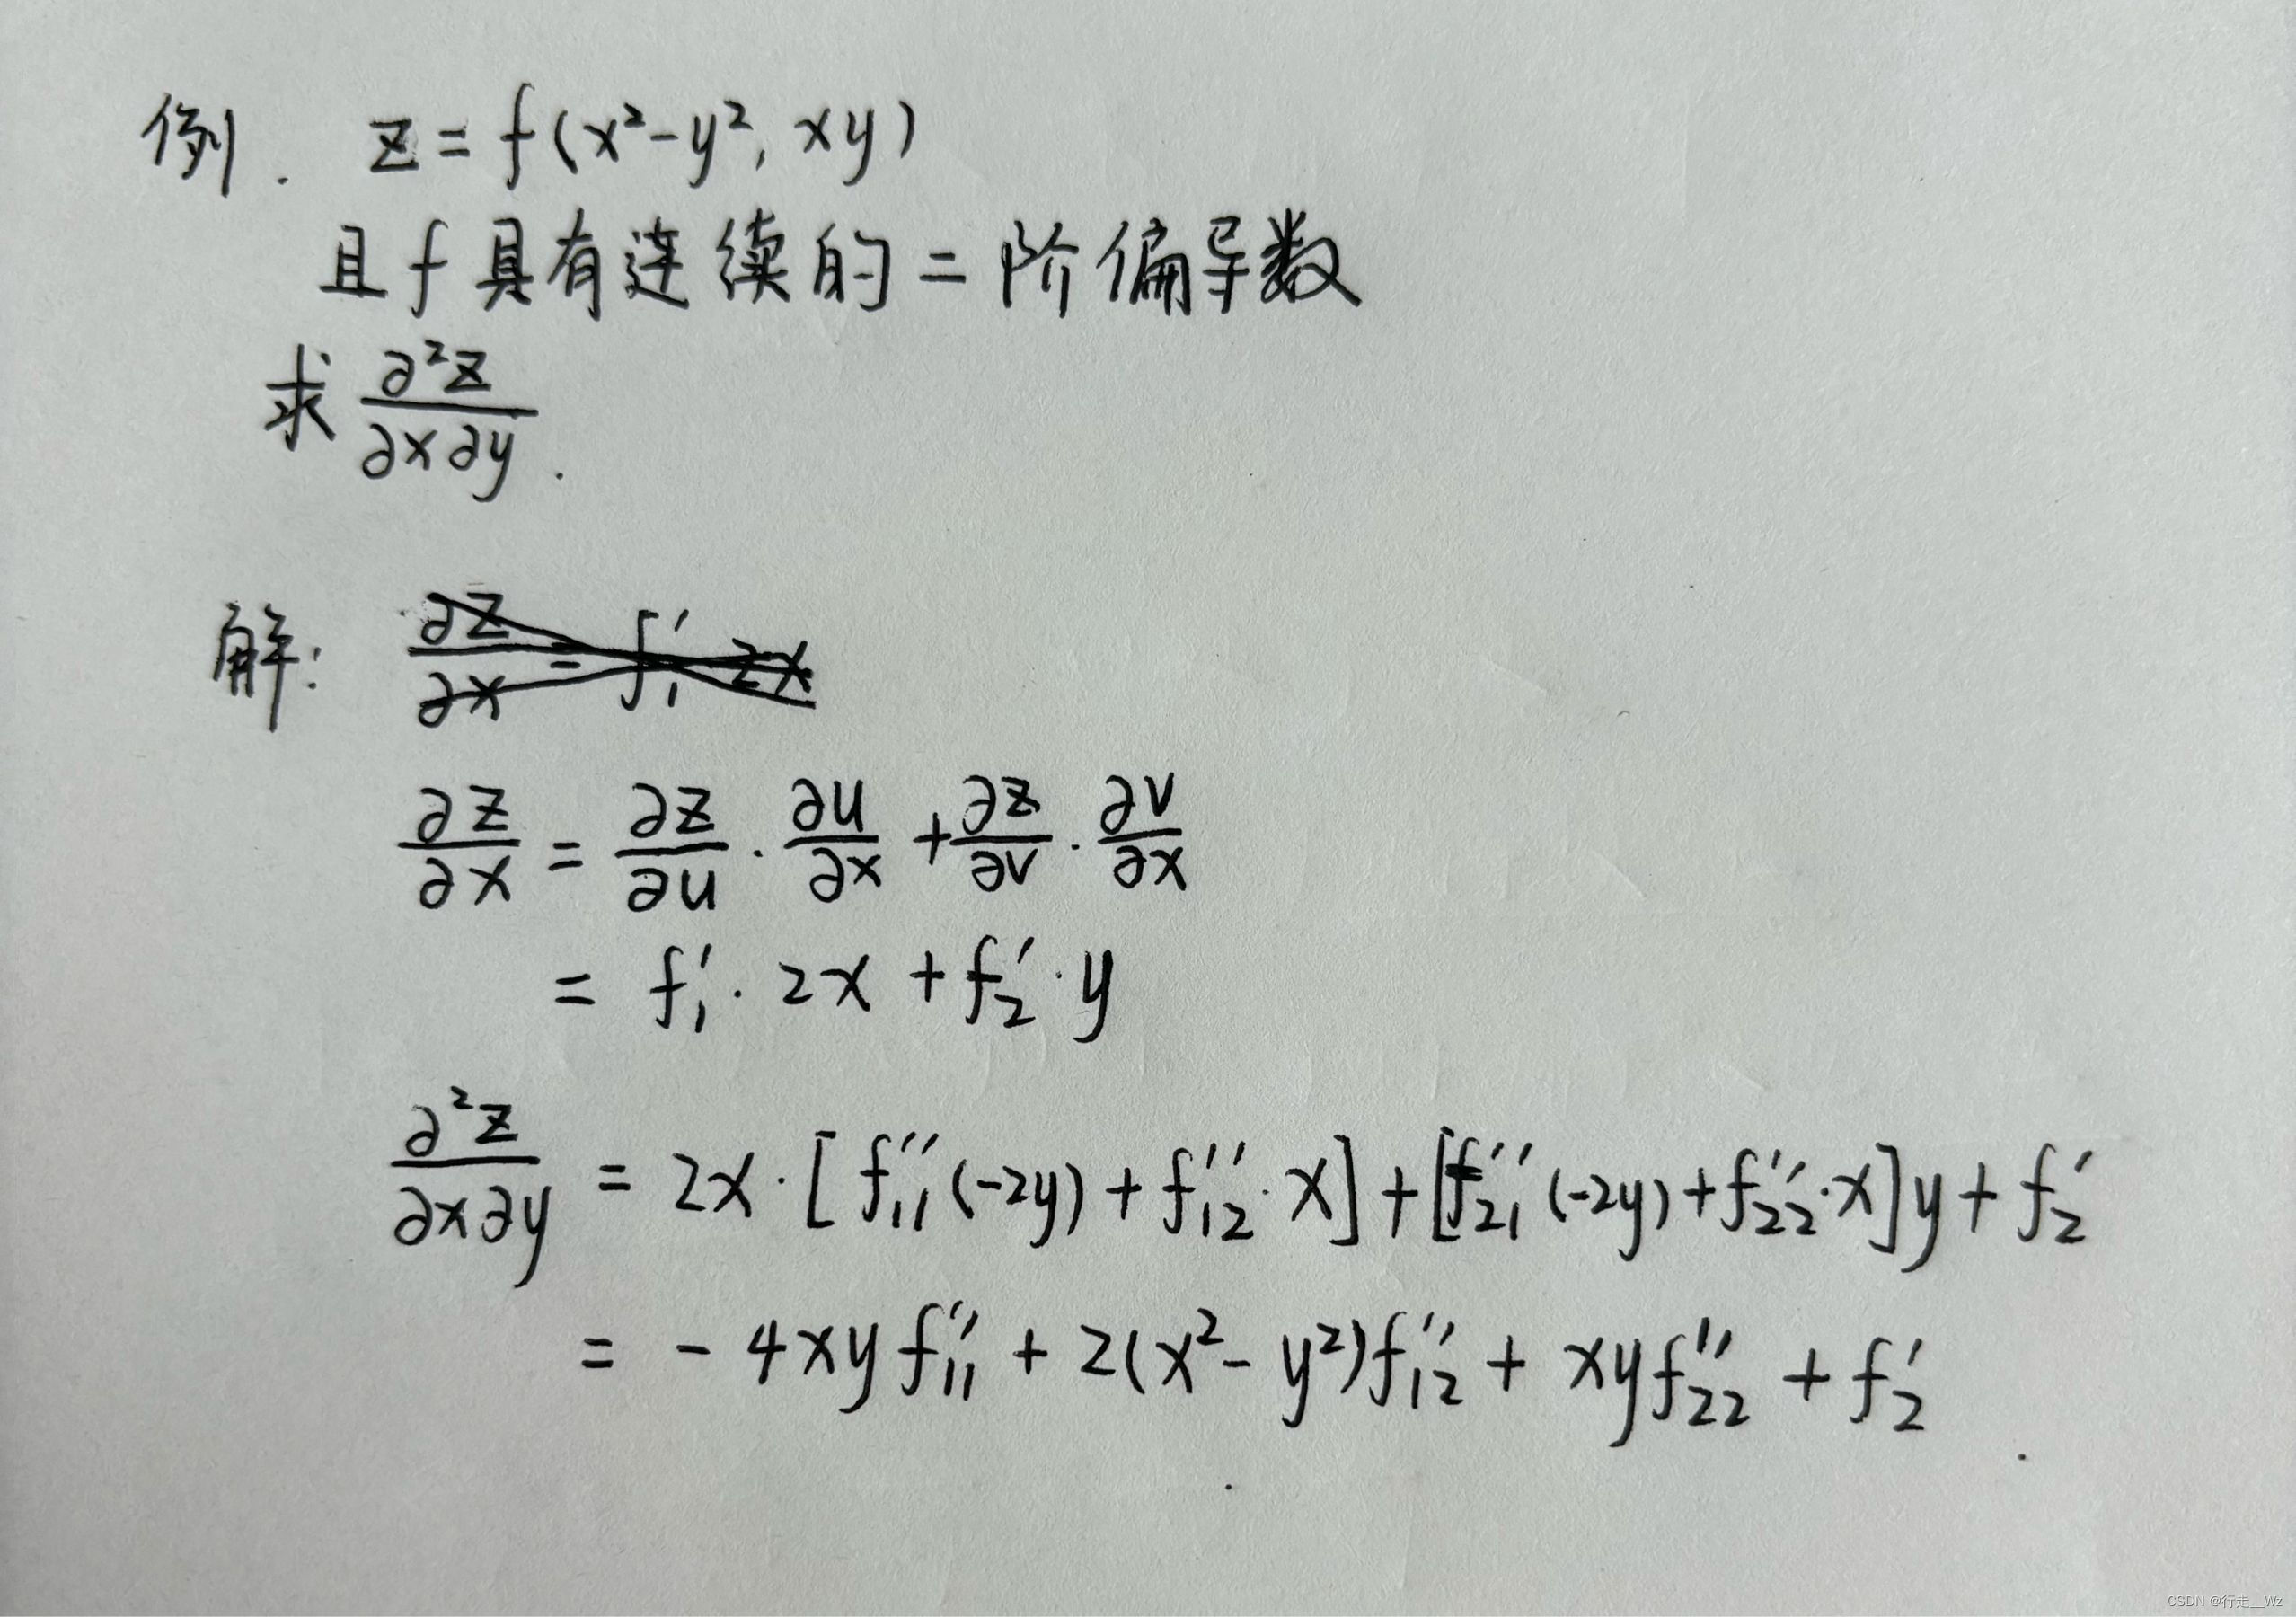 例. z = f(x²-y², xy)
且f具有连续的二阶偏导数
求 ∂²z/∂x∂y.
解: ∂z/∂x = f₁′ 2x
∂z/∂x = ∂z/∂u · ∂u/∂x + ∂z/∂v · ∂v/∂x
= f₁′ · 2x + f₂′ · y
∂²z/∂x∂y = 2x · [f₁₁″(-2y) + f₁₂″ · x] + [f₂₁″(-2y) + f₂₂″ · x]y + f₂′
= -4xyf₁₁″ + 2(x²-y²)f₁₂″ + xyf₂₂″ + f₂′
CSDN @行走__Wz